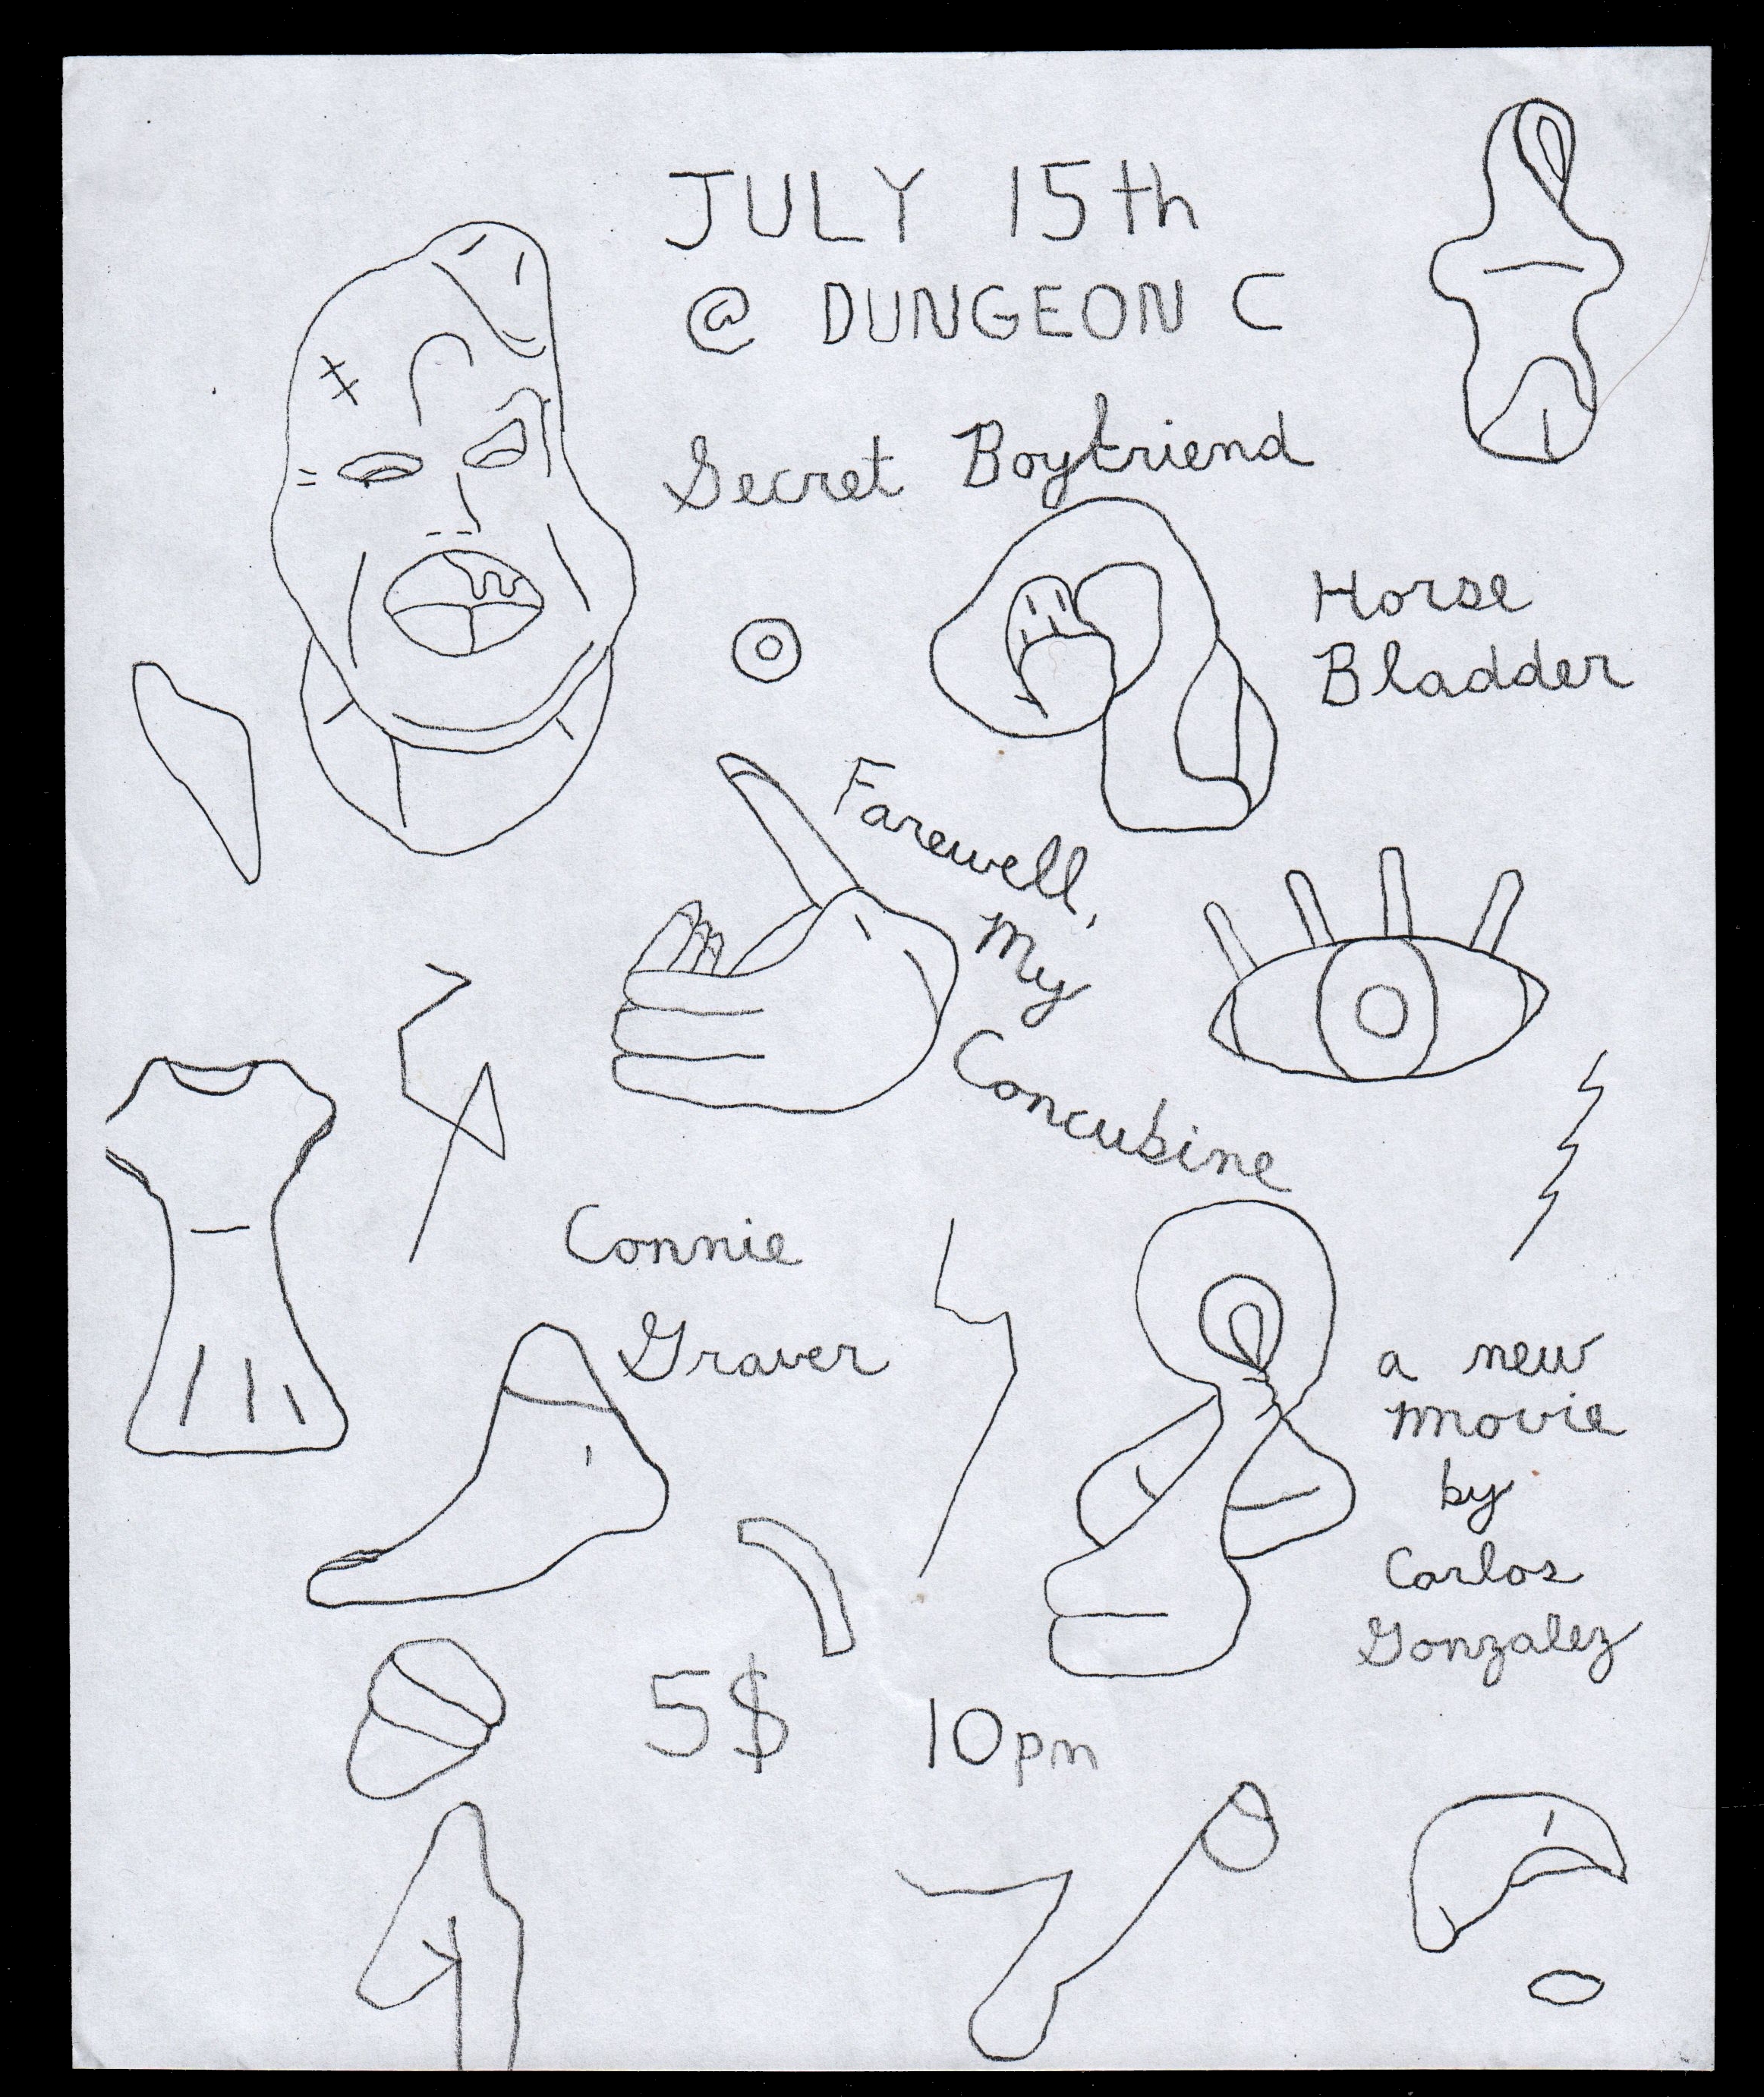 JULY 15th
@ DUNGEON C
Secret Boyfriend
Horse
Bladder
Farewell,
My
Concubine
Connie
Graver
a new
movie
by
Carlos
Gonzalez
5$ 10pm